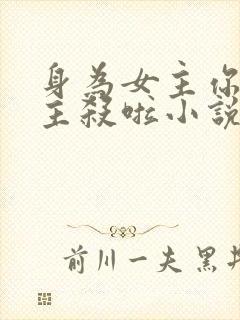 身為女主你
主殺啦小說
前川一夫黑